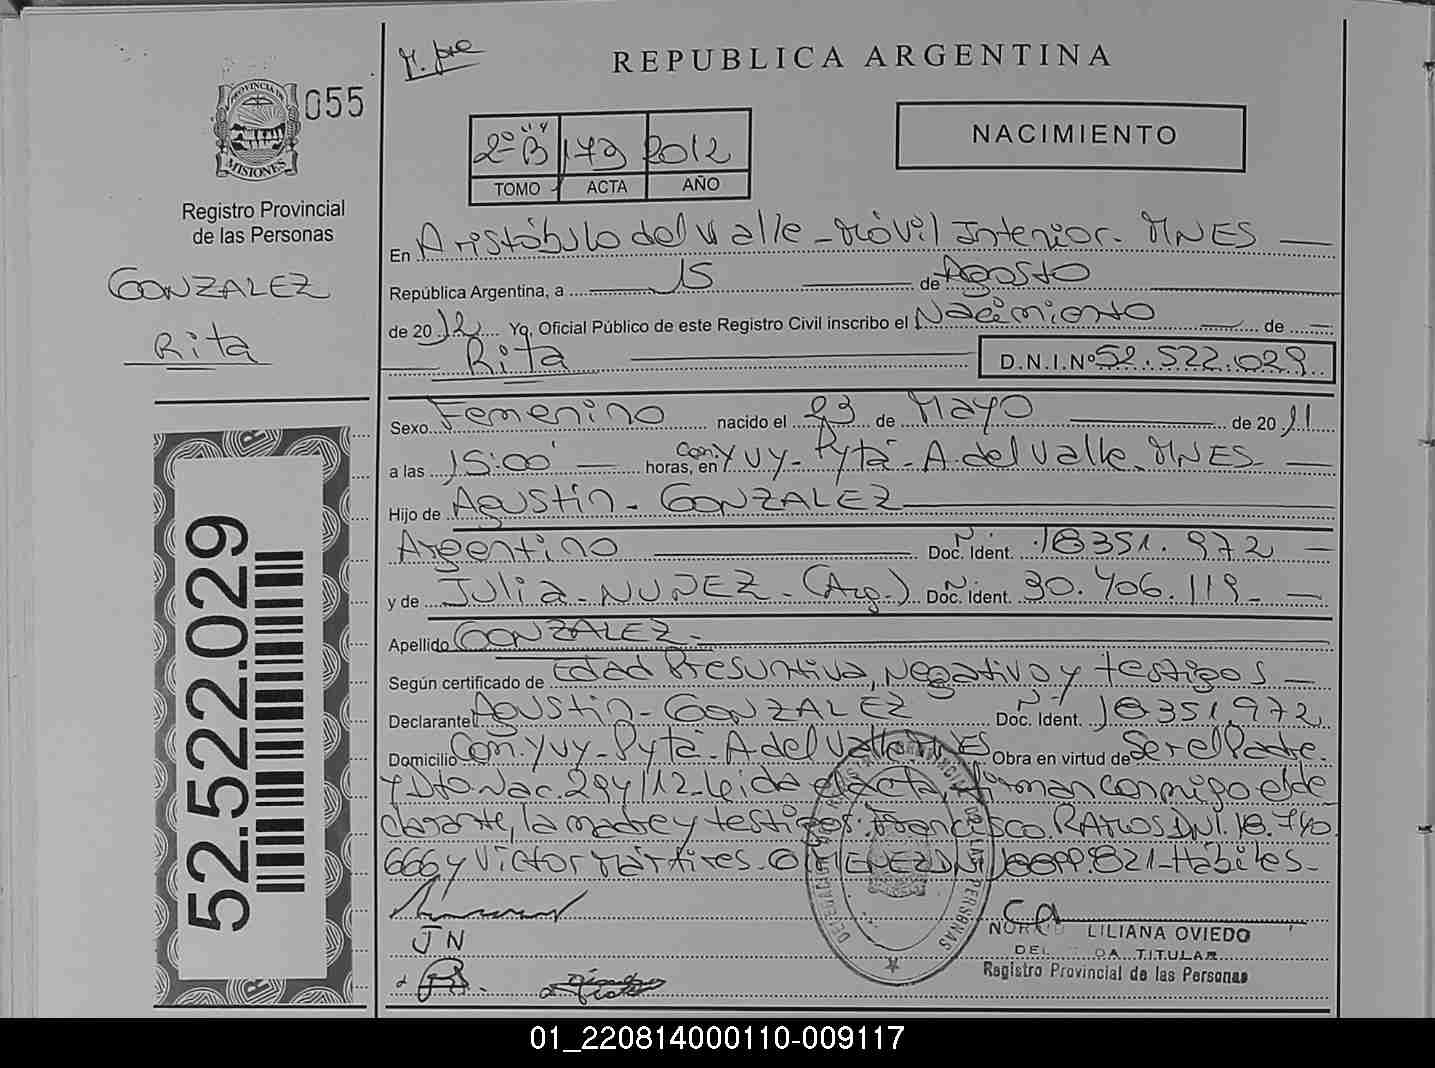 055
PROVINCIA DE
MISIONES
Registro Provincial
de las Personas
GONZALEZ
Rita
52.522.029
REPUBLICA ARGENTINA
2º B 179 2012
TOMO ACTA AÑO
NACIMIENTO
En Aristóbulo del Valle - Móvil Interior. MNES
República Argentina, a 15 de Agosto
de 2012 Yo, Oficial Público de este Registro Civil inscribo el Nacimiento de
Rita D.N.I.Nº 52.522.029
Sexo Femenino nacido el 23 de Mayo de 2011
a las 15:00 horas, en Com. Yvy-Pytá-A. del Valle. MNES-
Hijo de Agustin - GONZALEZ
Argentino Doc. Ident. Nº 18351.972
y de Julia - NUÑEZ - (Arg.) Doc. Ident. Nº 30.406.119
Apellido GONZALEZ -
Según certificado de Edad Presuntiva, Negativo y testigos
Declarante Agustin - GONZALEZ Doc. Ident. Nº 18351.972
Domicilio Com. Yvy-Pytá-A del Valle MNES Obra en virtud de Ser el Padre.
y Dto Nac. 294/12-Leida el acta, firman conmigo el de
clarante, la madre y testigos: Francisco RAMOS DNI.18.740.
666 y Victor Mártires. DNI 821-Hábiles-
JN
LILIANA OVIEDO
TITULAR
Registro Provincial de las Personas
01_220814000110-009117